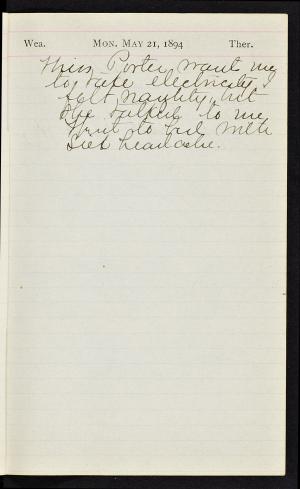 Wea. MON. MAY 21, 1894 Ther.
Miss Porter want me
to take electricity &
felt naughty but
she talked to me
Went to bed with
Sick headache.